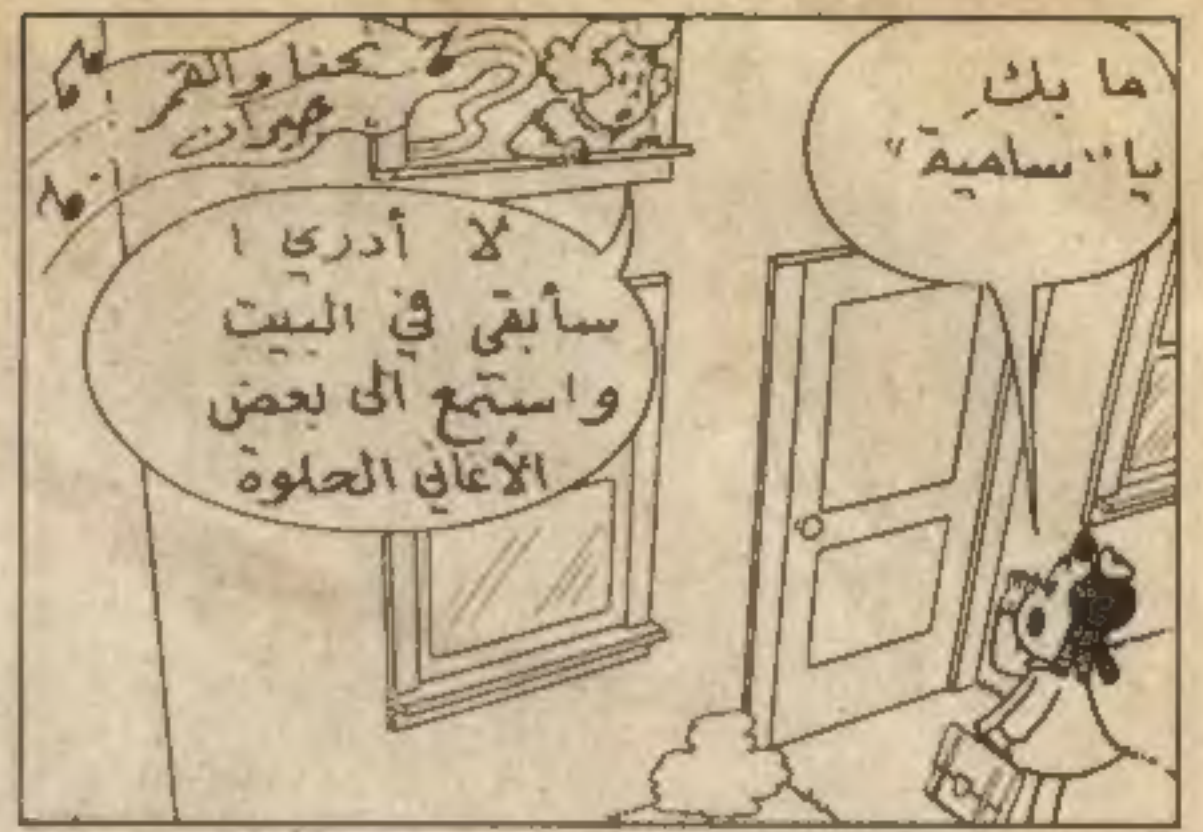 ما بكِ
يا "سامية"
نحنا والقمر
جيران
لا أدري !
سأبقى في البيت
واستمع الى بعض
الأغاني الحلوة